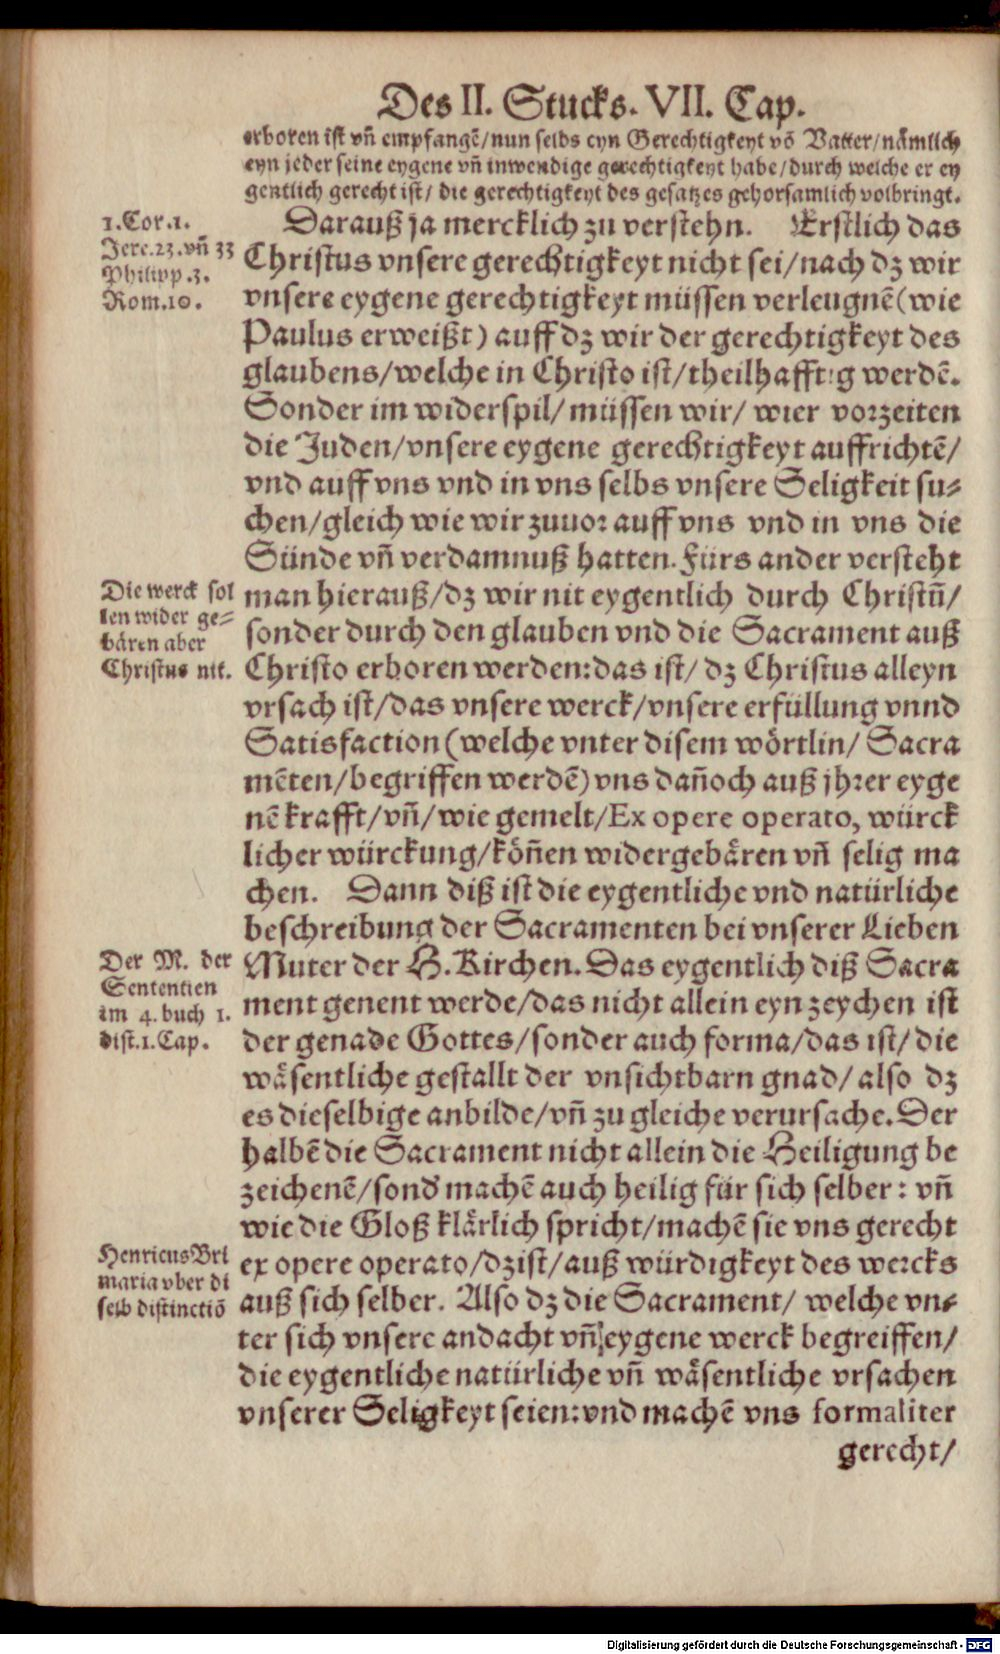 Des II. Stucks. VII. Cap.
erboren ist vñ empfangē/nun selbs eyn Gerechtigkeyt vō Vatter/nämlich
eyn jeder seine eygene vñ inwendige gerechtigkeyt habe/durch welche er ey
gentlich gerecht ist/ die gerechtigkeyt des gesatzes gehorsamlich volbringt.
1. Cor. 1.
Jere. 23. vñ 33
Philipp. 3.
Rom. 10.
Darauß ja mercklich zu verstehn. Erstlich das
Christus vnsere gerechtigkeyt nicht sei/nach dz wir
vnsere eygene gerechtigkeyt müssen verleugnē(wie
Paulus erweißt) auff dz wir der gerechtigkeyt des
glaubens/welche in Christo ist/theilhafftig werdē.
Sonder im widerspil/ müssen wir/ wier vorzeiten
die Juden/vnsere eygene gerechtigkeyt auffrichtē/
vnd auff vns vnd in vns selbs vnsere Seligkeit su⸗
chen/gleich wie wir zuuor auff vns vnd in vns die
Sünde vñ verdamnuß hatten. Fürs ander versteht
Die werck sol
len wider ge⸗
bären aber
Christus nit.
man hierauß/dz wir nit eygentlich durch Christū/
sonder durch den glauben vnd die Sacrament auß
Christo erboren werden:das ist/ dz Christus alleyn
vrsach ist/das vnsere werck/vnsere erfüllung vnnd
Satisfaction (welche vnter disem wörtlin/ Sacra
mēten/begriffen werdē) vns dañoch auß jhrer eyge
nē krafft/vñ/wie gemelt/Ex opere operato, würck
licher würckung/köñen widergebären vñ selig ma
chen. Dann diß ist die eygentliche vnd natürliche
beschreibung der Sacramenten bei vnserer Lieben
Der M. der
Sententien
im 4. buch 1.
dist. 1. Cap.
Muter der H. Kirchen. Das eygentlich diß Sacra
ment genent werde/das nicht allein eyn zeychen ist
der genade Gottes/sonder auch forma/das ist/ die
wäsentliche gestallt der vnsichtbarn gnad/ also dz
es dieselbige anbilde/vñ zu gleiche verursache. Der
halbē die Sacrament nicht allein die Heiligung be
zeichenē/sond' machē auch heilig für sich selber: vñ
wie die Gloß klärlich spricht/machē sie vns gerecht
Henricus Bri
maria vber di
selb distinctiō
ex opere operato/dz ist/ auß würdigkeyt des wercks
auß sich selber. Also dz die Sacrament/ welche vn⸗
ter sich vnsere andacht vñ eygene werck begreiffen/
die eygentliche natürliche vñ wäsentliche vrsachen
vnserer Seligkeyt seien:vnd machē vns formaliter
gerecht/
Digitalisierung gefördert durch die Deutsche Forschungsgemeinschaft - DFG